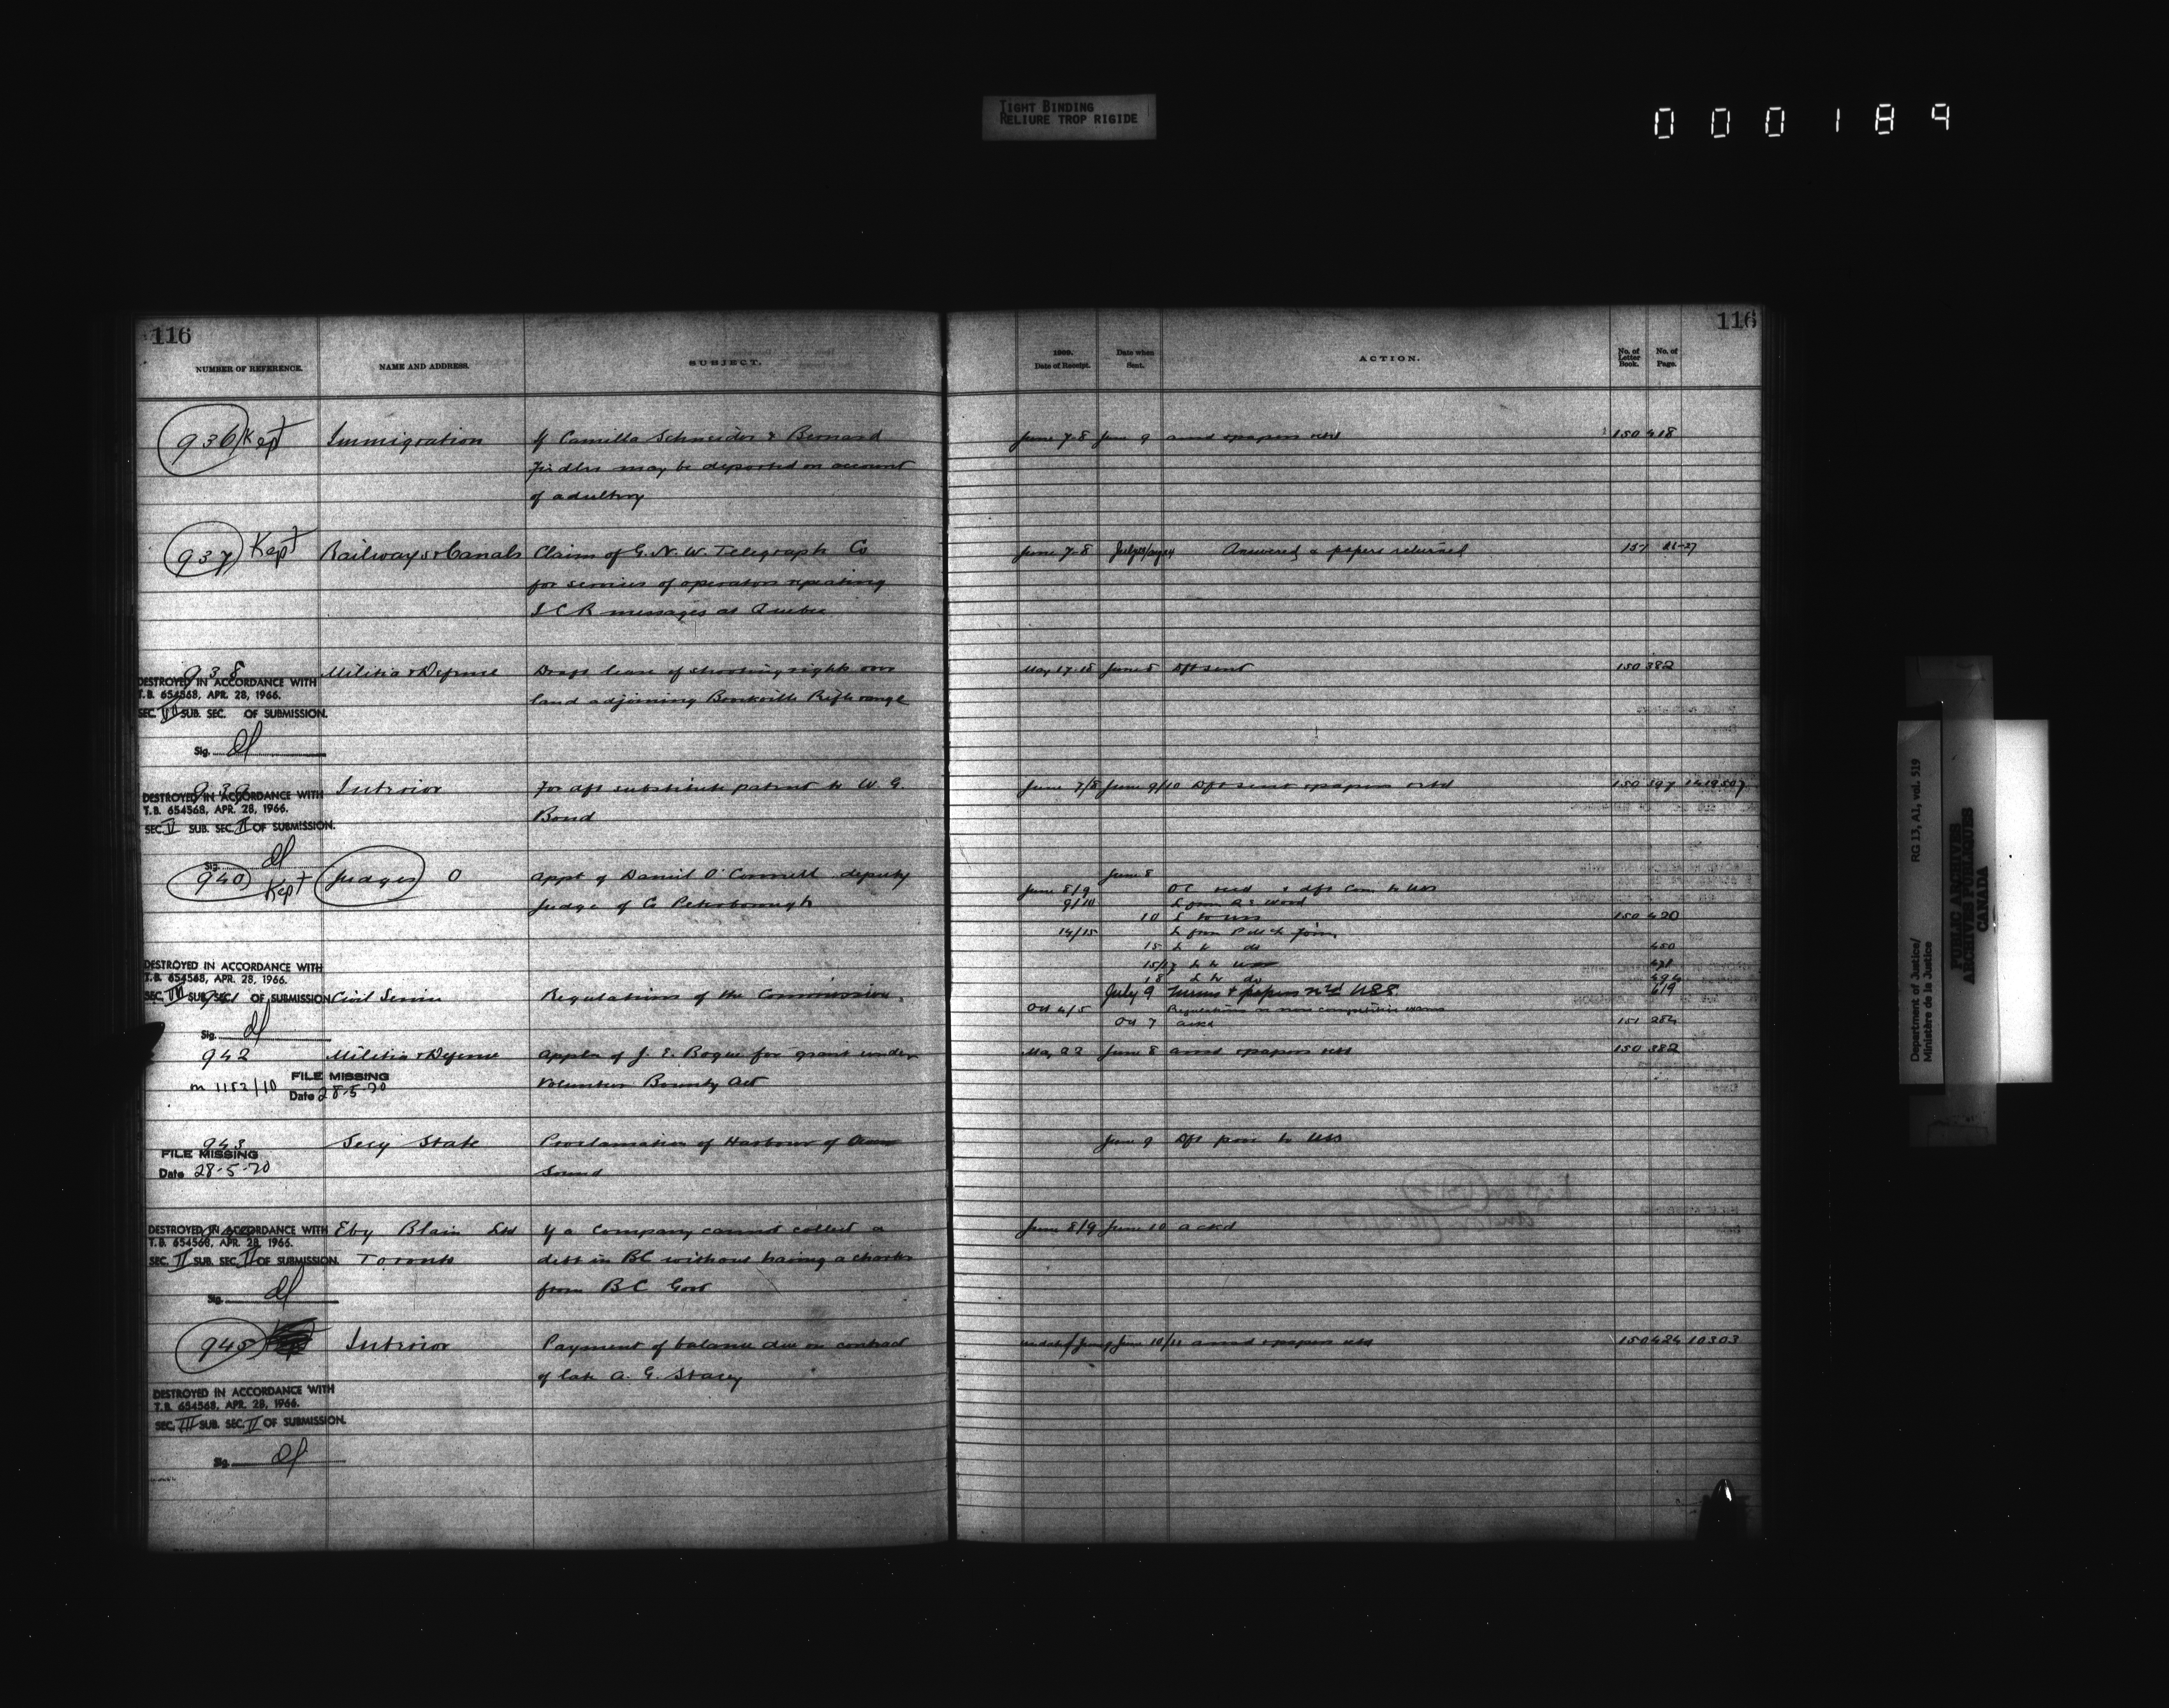 TIGHT BINDING
RELIURE TROP RIGIDE
000189
116
NUMBER OF REFERENCE.
NAME AND ADDRESS.
SUBJECT.
936 Kept
Immigration
If Camilla Schneider & Bernard
may be deported on account
of adultery
937 Kept
Railways & Canals
Claim of G. N. W. Telegraph Co
for services of operators repeating
I C R messages at Quebec
938
DESTROYED IN ACCORDANCE WITH
T.B. 654568, APR. 28, 1966.
SEC. SUB. SEC. OF SUBMISSION.
Sig.
Militia & Defense
Draft lease of shooting rights over
land adjoining Rifle range
939
DESTROYED IN ACCORDANCE WITH
T.B. 654568, APR. 28, 1966.
SEC. SUB. SEC. II OF SUBMISSION.
Sig.
Interior
For dft substitute patent to W. G.
Bond
940 Kept
Judges O
Appt of Daniel O'Connell deputy
Judge of Co Peterborough
DESTROYED IN ACCORDANCE WITH
T.B. 654568, APR. 28, 1966.
SEC. SUB. SEC. OF SUBMISSION.
Sig.
Civil Service
Regulations of the Commission.
942
m 1152/10
FILE MISSING
Date 28-5-70
Militia & Defense
Appln of J. E. Bogue for grant under
Volunteer Bounty Act
943
FILE MISSING
Date 28-5-70
Secy State
Proclamation of Harbour of Owen
Sound
DESTROYED IN ACCORDANCE WITH
T.B. 654568, APR. 28, 1966.
SEC. II SUB. SEC. II OF SUBMISSION.
Sig.
Eby Blain Ltd
Toronto
If a Company cannot collect a
debt in BC without having a charter
from BC Govt
945
Interior
Payment of balance due on contract
of late A. G. Stacey
DESTROYED IN ACCORDANCE WITH
T.B. 654568, APR. 28, 1966.
SEC. III SUB. SEC. II OF SUBMISSION.
Sig.
116
1909.
Date of Receipt.
Date when
Sent.
ACTION.
No. of
Letter
Book.
No. of
Page.
June 7-8 June 9 ansd & papers retd 150 418
June 7-8 Answered & papers returned 151
May 17-18 June 8 Dft sent 150 382
June 7/8 June 9/10 Dft sent & papers retd 150 397
June 8
June 8/9 OC recd & dft Com to
9/10 L from
10 L to 150 420
14/15 L from
15 L to do 450
15/17 L to
18 L to do 494
July 9 & papers 619
Oct 4/5 Regulations re non competitive exams
Oct 7 ackd 151 284
May 22 June 8 ansd & papers retd 150 382
June 9 Dft to
June 8/9 June 10 ackd
June 10/11 ansd & papers retd 150 424 10303
Department of Justice/ RG 13, A1, vol. 519
Ministère de la Justice
PUBLIC ARCHIVES
ARCHIVES PUBLIQUES
CANADA